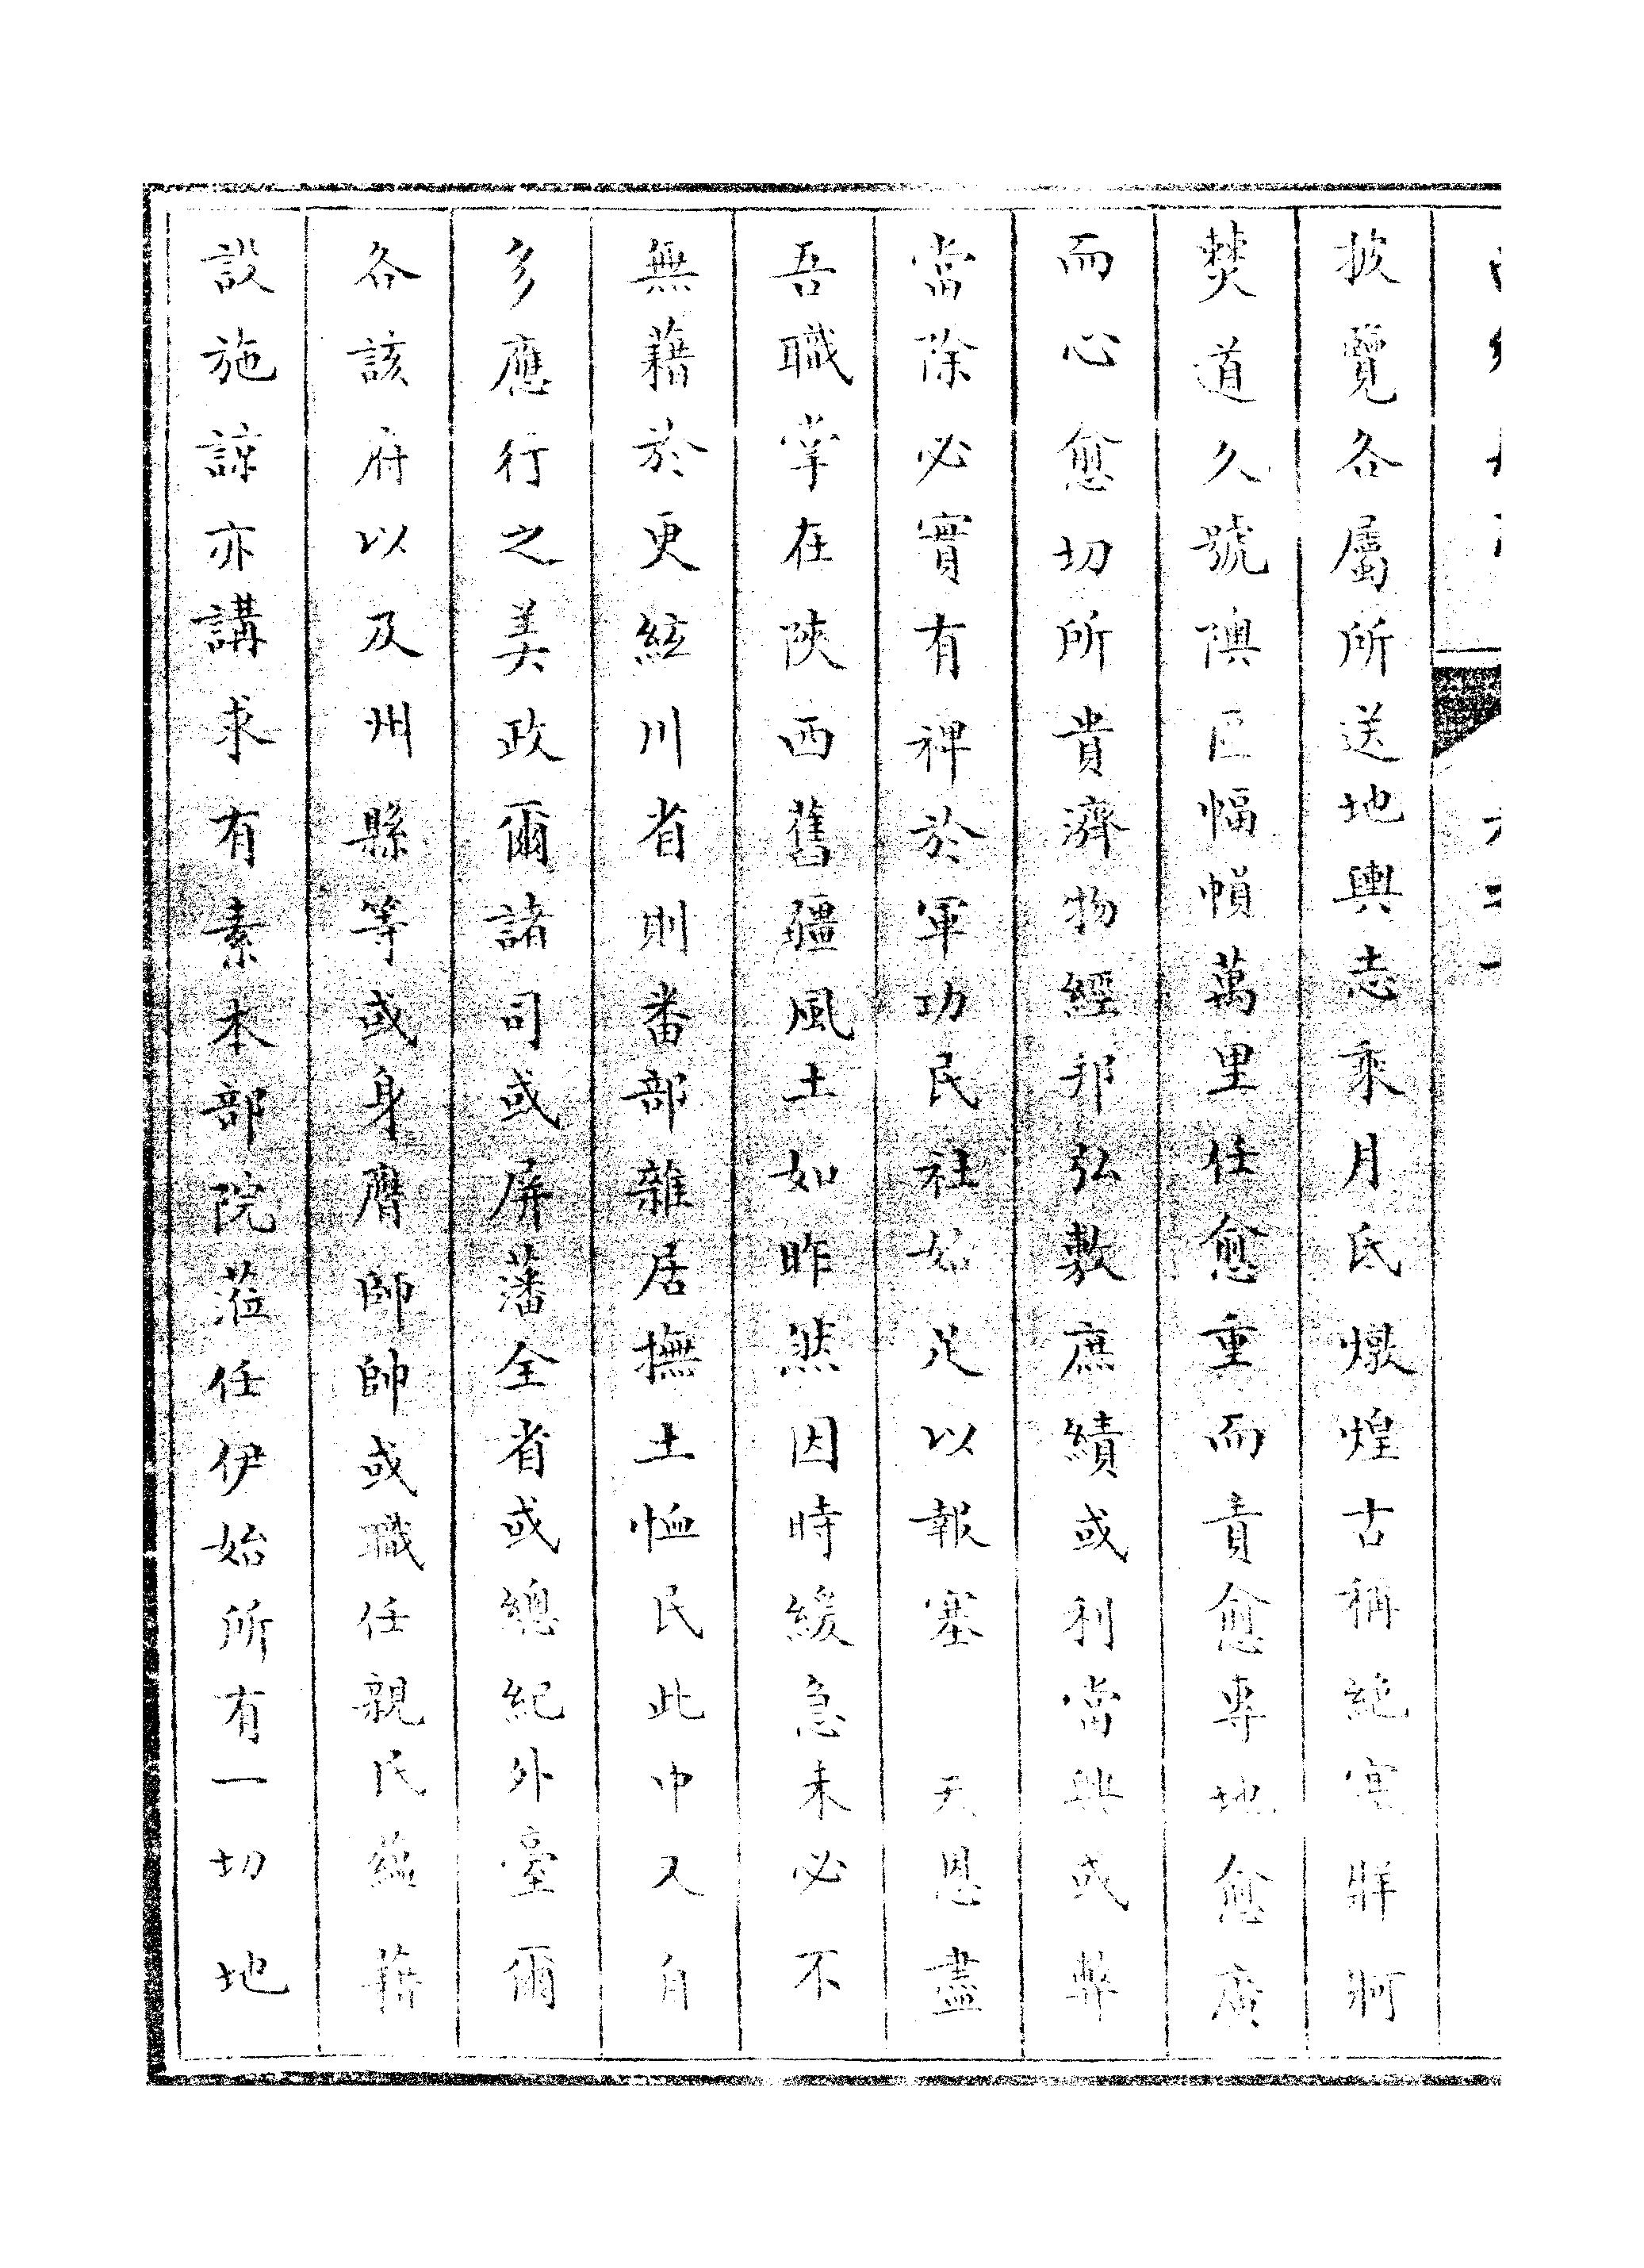 披覽各屬所送地輿志乘月氏燉煌古稱絶塞牂牁
僰道久號隩區幅幀萬里任愈重而責愈專地愈廣
而心愈切所貴濟物經邦弘敷庶績或利當興或弊
當除必實有裨於軍功民社始足以報塞　天恩盡
吾職掌在陝西舊疆風土如昨然因時緩急未必不
無藉於更絃川省則番部雜居撫土恤民此中又自
多應行之美政爾諸司或屏藩全省或總紀外臺爾
各該府以及州縣等或身膺師帥或職任親民蘊藉
設施諒亦講求有素本部院蒞任伊始所有一切地